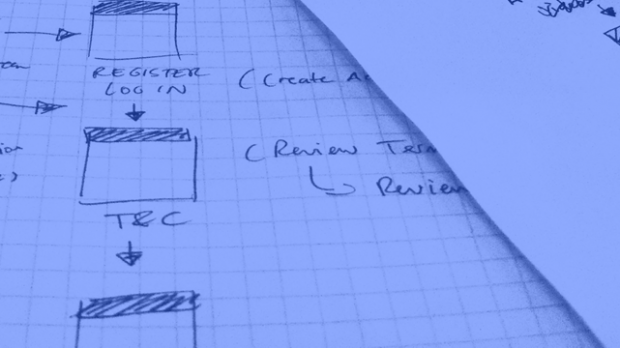 REGISTER
LOG IN
(Create
(Review
Review
T&C